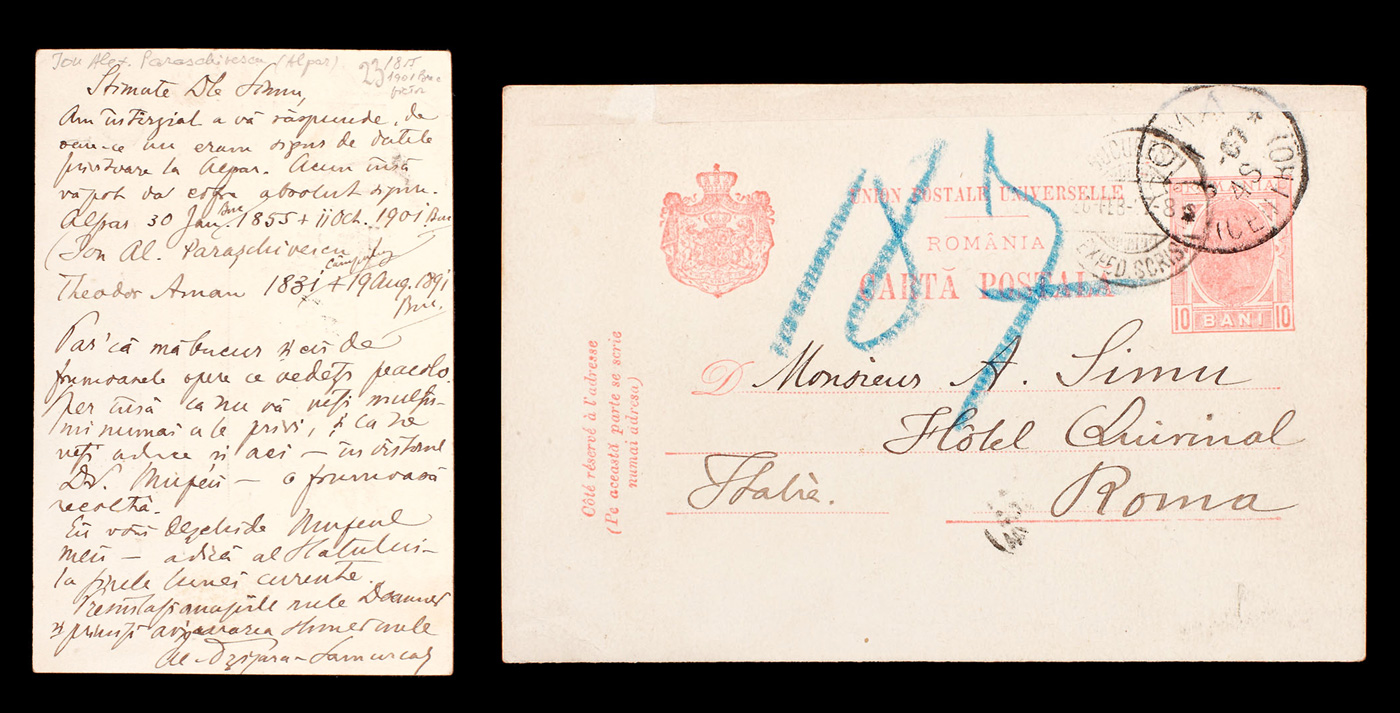 Ion Alex. Paraschivescu (Alpar)
23
1855
1901 Buc
Stimate Dle Simu,
Am întîrziat a vă răspunde, de
oare-ce nu eram sigur de datele
privitoare la Alpar. Acum însă
vă pot da cifra absolut sigură.
Alpar 30 Jan. Buc 1855 + 11 Oct. 1901 Buc
(Ion Al. Paraschivescu
Câmpulung
Theodor Aman 1831 + 19 Aug. 1891
Buc.
Par'că mă bucur și eu de
frumoasele opere ce vedeți pe acolo.
Sper însă ca nu vă veți mulțu-
mi numai a le privi, ci ca ne
veți aduce și aci – în viitorul
Dv. Muzeu – o frumoasă
recoltă.
Eu voiu deschide Muzeul
meu – adică al Statului –
la finele lunei curente.
Prezentați omagiile mele Doamnei
și primiți asigurarea stimei mele
Al. Tzigara-Samurcaș
187
UNION POSTALE UNIVERSELLE
ROMÂNIA
CARTĂ POSTALĂ
ROMANIA
10 BANI 10
BUCU
26 FEB
EXPED. SCRIS
ROMA
Côté réservé à l'adresse
(Pe această parte se scrie
numai adresa)
D Monsieur A. Simu
Hôtel Quirinal
Italie. Roma